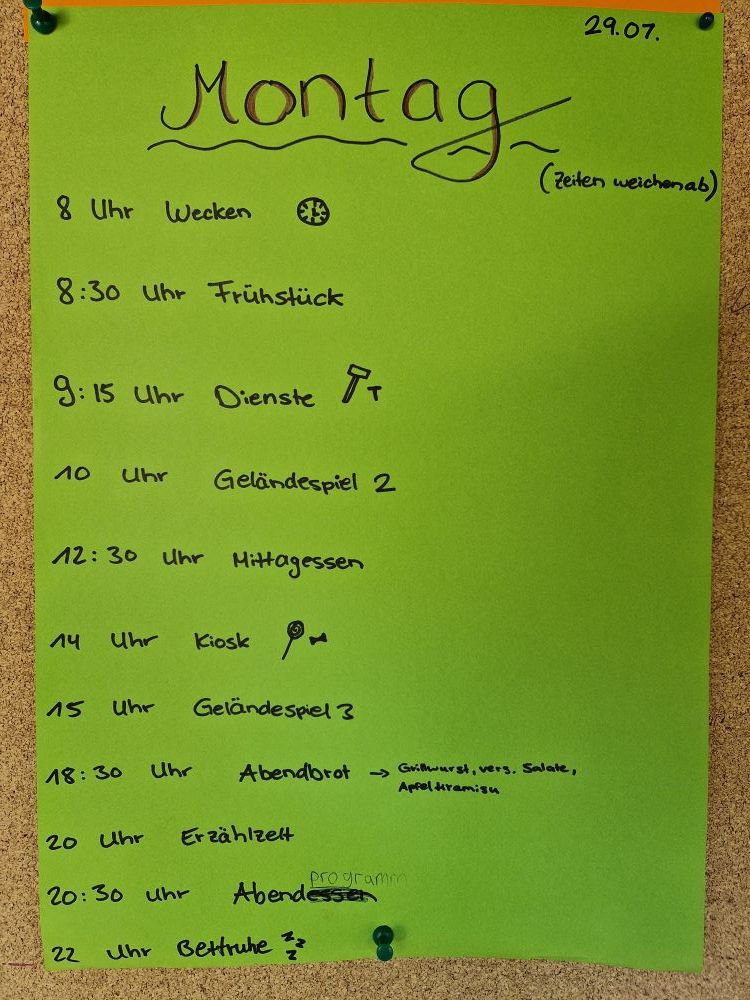 29.07.
Montag
(Zeiten weichen ab)
8 Uhr Wecken
8:30 Uhr Frühstück
9:15 Uhr Dienste
10 Uhr Geländespiel 2
12:30 Uhr Mittagessen
14 Uhr Kiosk
15 Uhr Geländespiel 3
18:30 Uhr Abendbrot → Grillwurst, vers. Salate,
Apfeltiramisu
20 Uhr Erzählzelt
programm
20:30 Uhr Abendessen
22 Uhr Bettruhe zzz